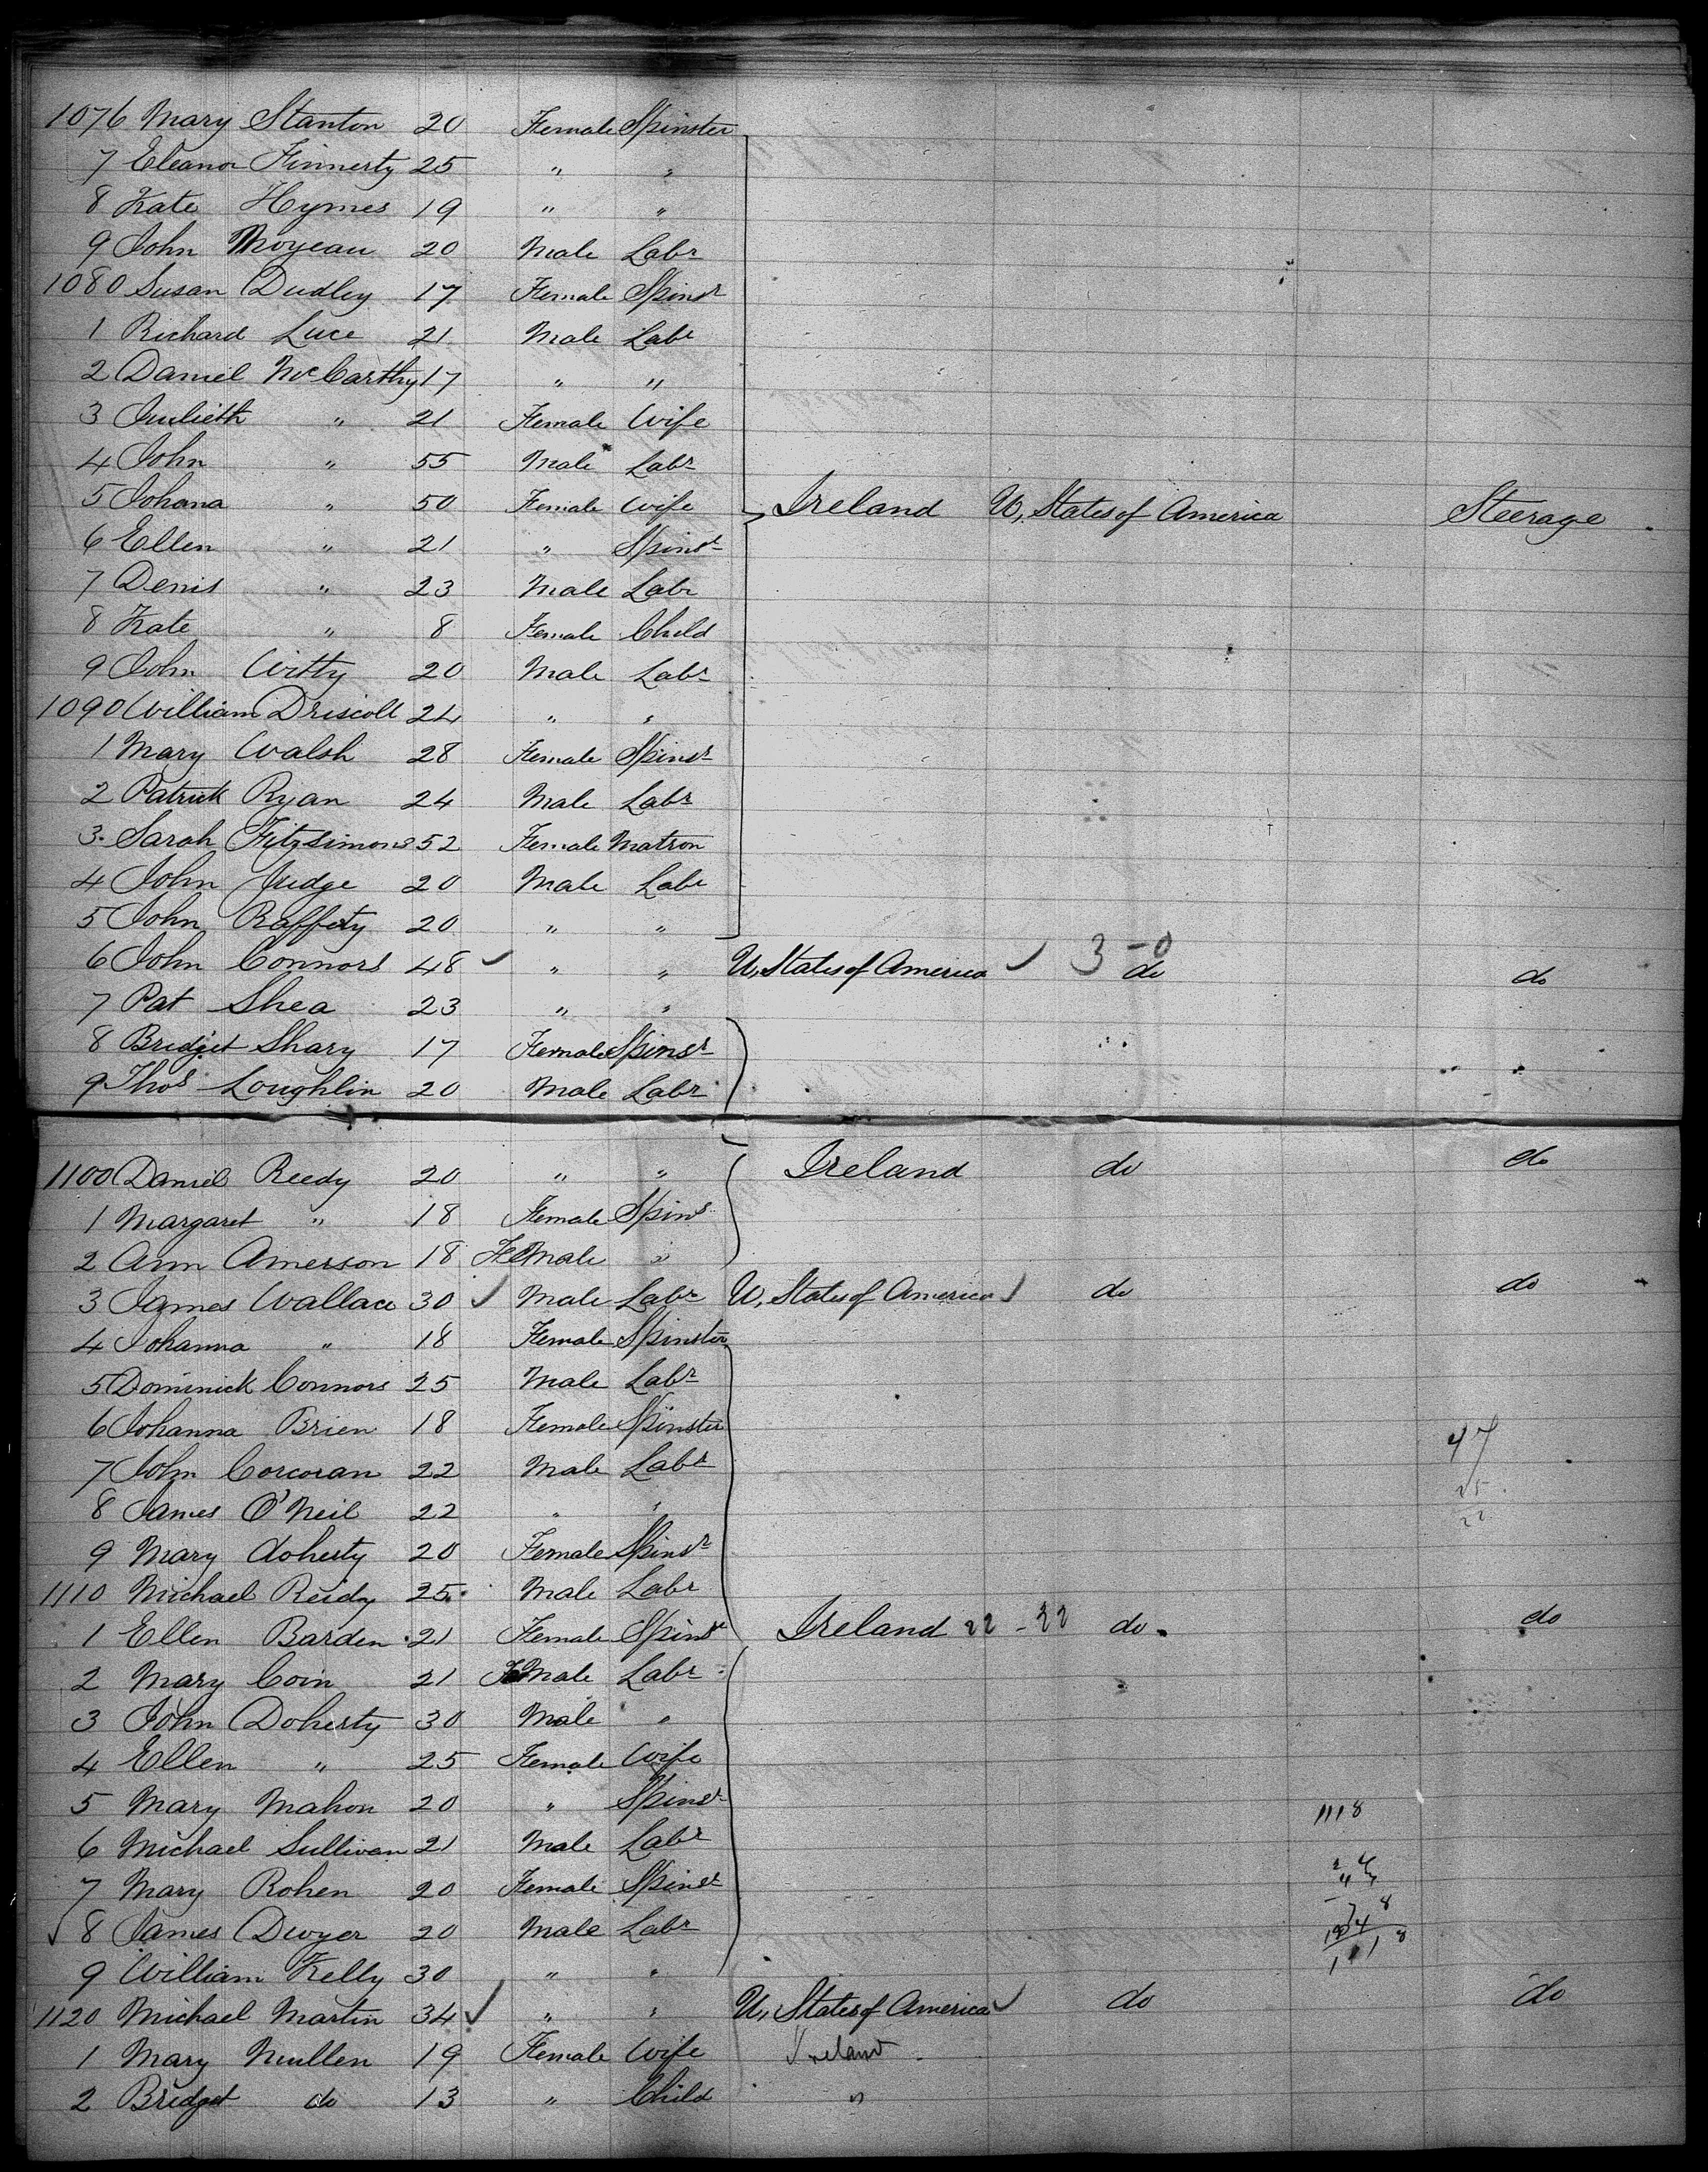 1076 Mary Stanton 20 Female Spinster
7 Eleanor Finnerty 25 " "
8 Kate Hymes 19 " "
9 John Moyeau 20 Male Labr
1080 Susan Dudley 17 Female Spinsr
1 Richard Luce 21 Male Labr
2 Daniel McCarthy 17 " "
3 Julieth " 21 Female Wife
4 John " 55 Male Labr
5 Johana " 50 Female Wife Ireland U, States of America Steerage
6 Ellen " 21 " Spinsr
7 Denis " 23 Male Labr
8 Kate " 8 Female Child
9 John Witty 20 Male Labr
1090 William Driscoll 24 " "
1 Mary Walsh 28 Female Spinsr
2 Patrick Ryan 24 Male Labr
3 Sarah Fitzsimons 52 Female Matron
4 John Judge 20 Male Labr
5 John Rafferty 20 " "
6 John Connors 48 ✓ " " U, States of America ✓ 3-0 do do
7 Pat Shea 23 " "
8 Bridget Shary 17 Female Spinsr
9 Thos Loughlin 20 Male Labr
1100 Daniel Reedy 20 " " Ireland do do
1 Margaret " 18 Female Spins
2 Ann Amerson 18 FeMale "
3 James Wallace 30 ✓ Male Labr U, States of America ✓ do do
4 Johanna " 18 Female Spinster
5 Dominick Connors 25 Male Labr
6 Johanna Brien 18 Female Spinster
47
7 John Corcoran 22 Male Labr
25
8 James O'Neil 22 " "
22
9 Mary doherty 20 Female Spinsr
1110 Michael Reidy 25 Male Labr
1 Ellen Barden 21 Female Spinsr Ireland 22 - 22 do do
2 Mary Coin 21 FeMale Labr
3 John Doherty 30 Male "
4 Ellen " 25 Female Wife
5 Mary Mahon 20 " Spinsr
1118
6 Michael Sullivan 21 Male Labr
7 Mary Rohen 20 Female Spinsr
✓ 8 James Dwyer 20 Male Labr
9 William Kelly 30 " "
1120 Michael Martin 34 ✓ " " U, States of America ✓ do do
1 Mary Mullen 19 Female Wife Ireland
2 Bridget do 13 " Child "